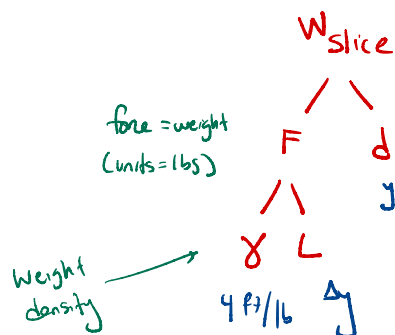 W slice
force = weight
(units = lbs)
F
d
y
γ
L
Weight
density
4 ft/lb
Δy